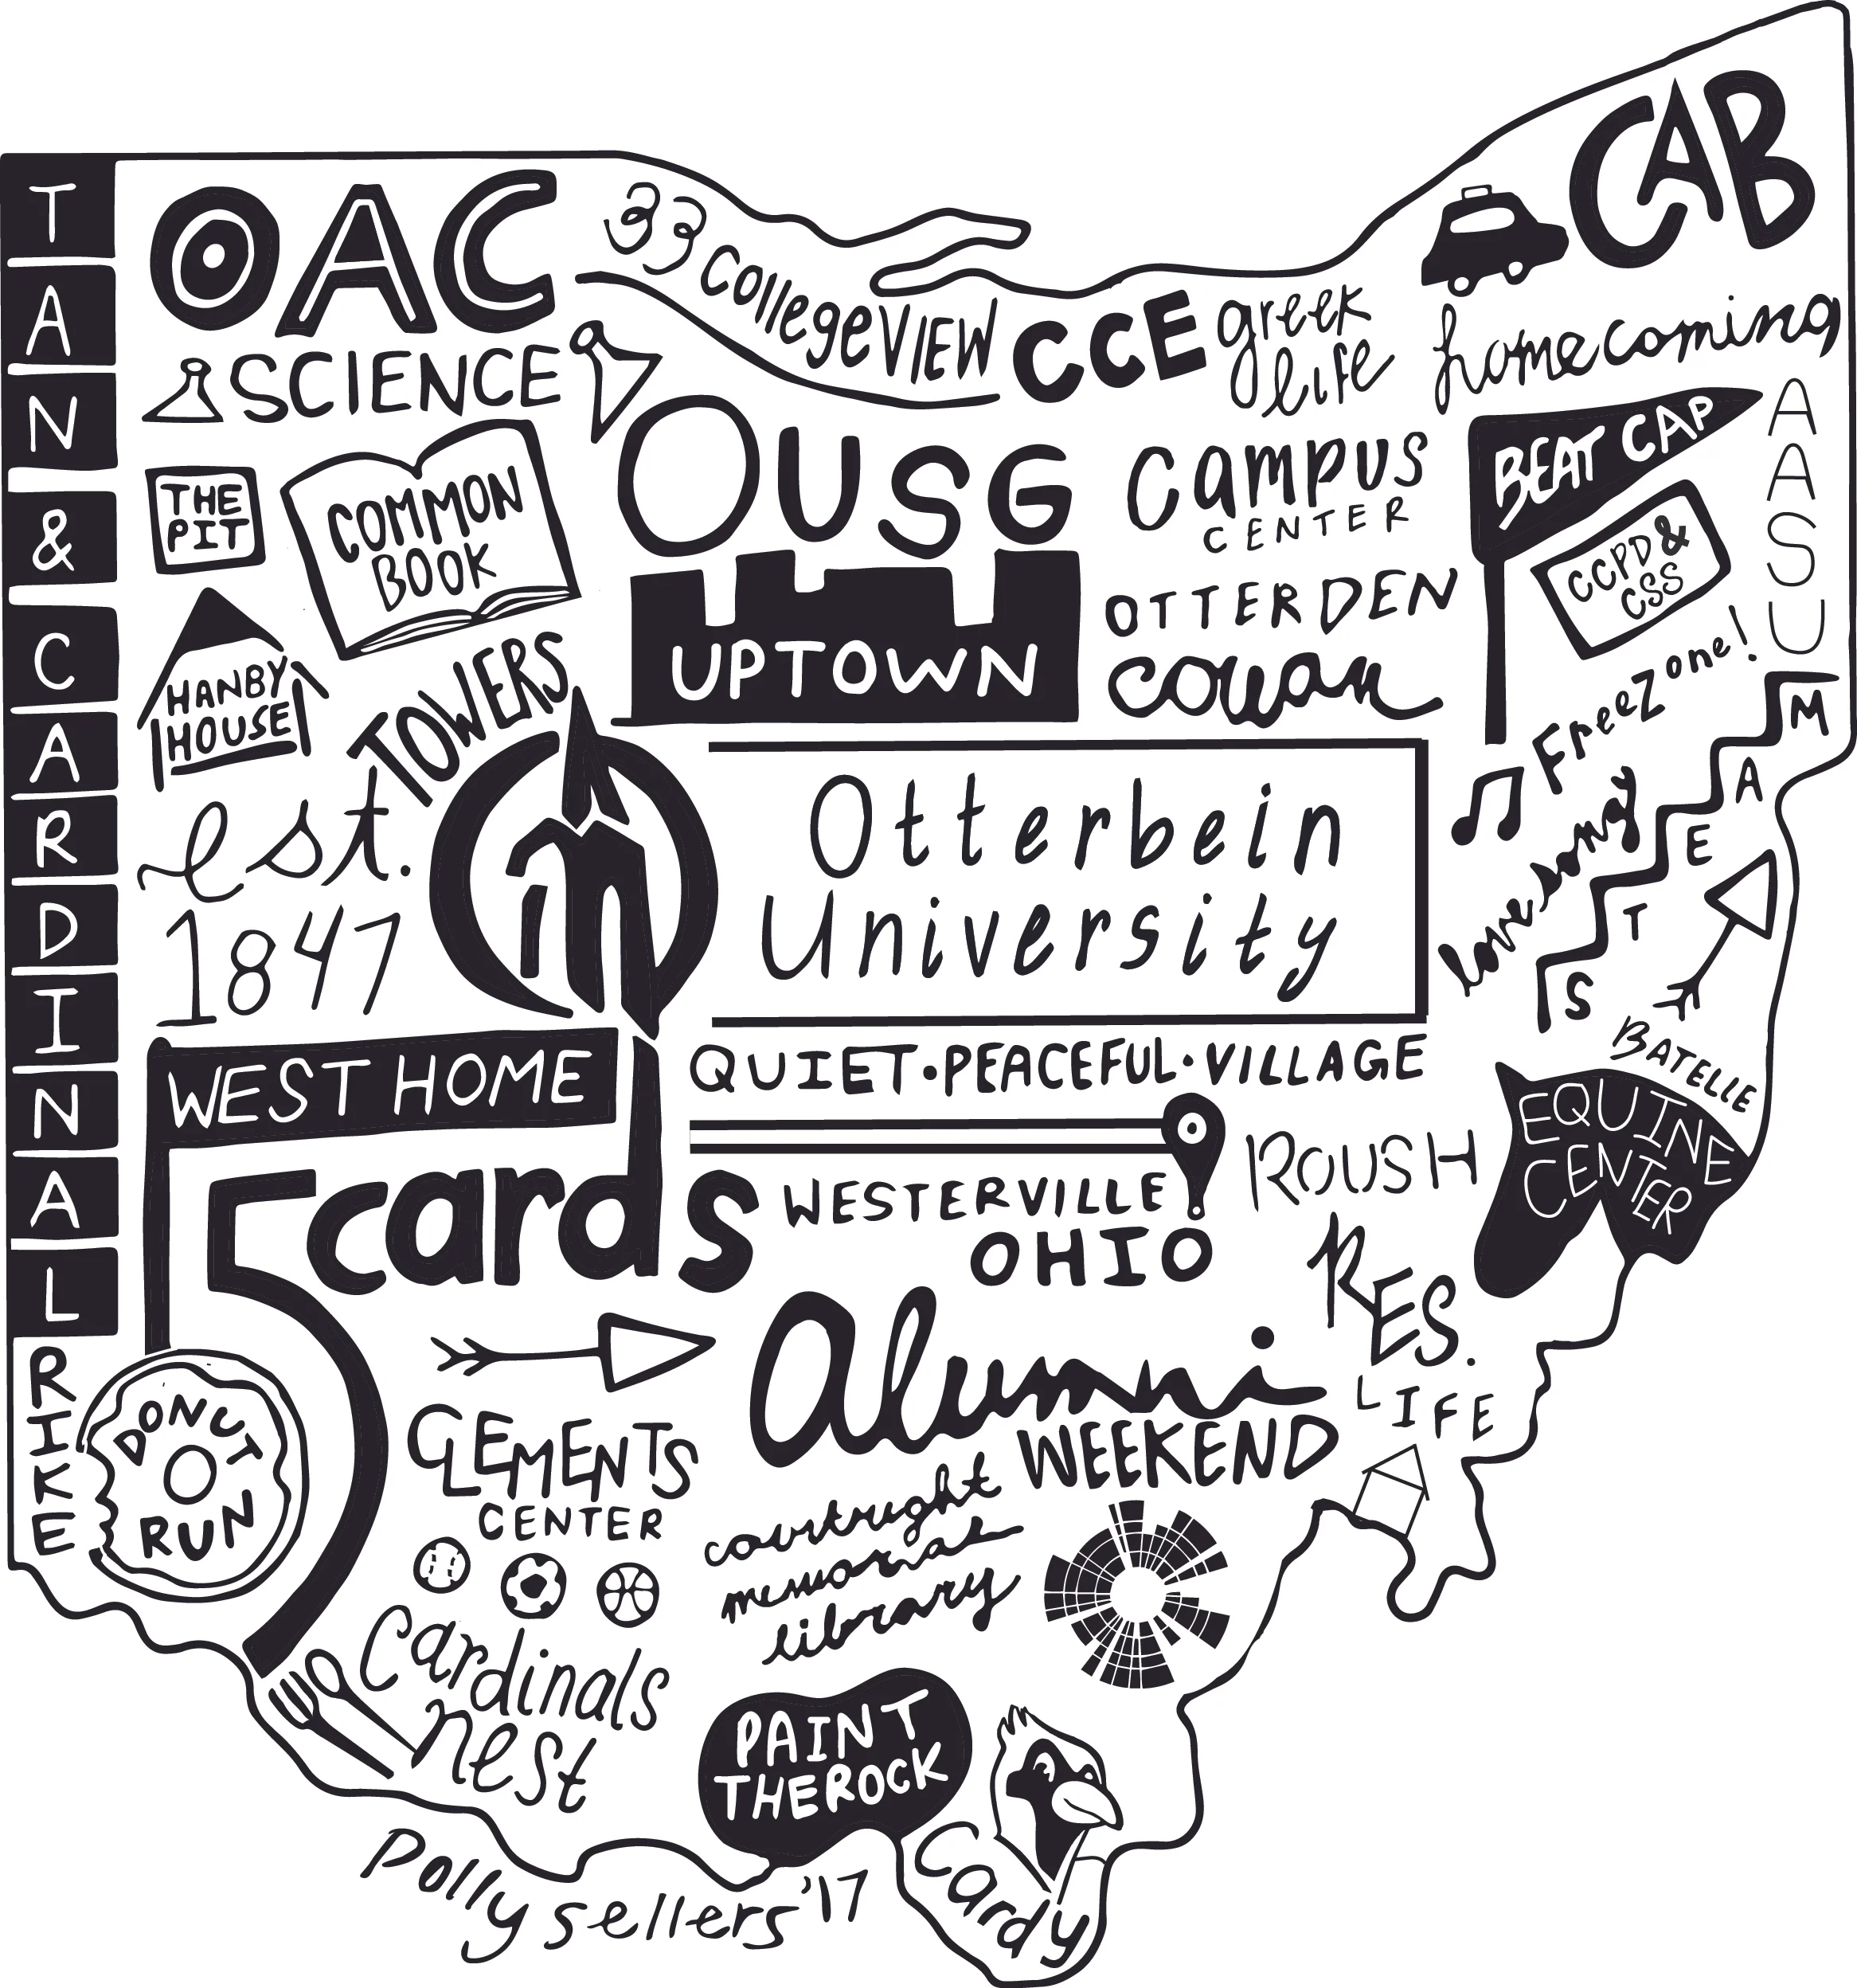 TAN & CARDINAL
RIKE
OAC
SCIENCE
33 College VIEW
CCE
Greek Life
CAB
homecoming
AASU
THE
PIT
COMMON
BOOK
OUSG
UPTOWN
Campus
CENTER
OTTERDEN
BEAT CAP
CCPD &
CSS
HANBY
HOUSE
TOWERS
est.
1847
Otterbein
University
FreeZone!
STEAM
QUIET·PEACEFUL·VILLAGE
WEST HOME
5cards
WESTERVILLE
OHIO
ROUSH
BATELLE
EQUINE
CENTER
RES.
LIFE
DONUT
RUN
CLEMENTS
CENTER
Alumni
WEEKEND
courtright
memorial
library
Cardinals
nest
PAINT
THE ROCK
Cardy
Polly sellers '17